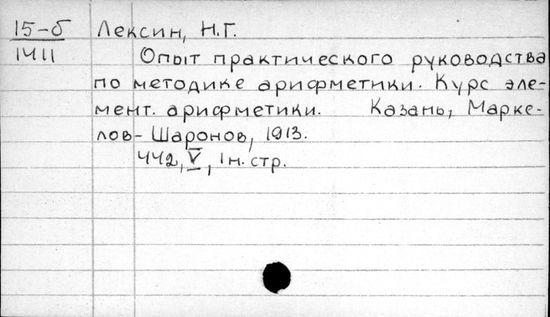 15-б Лексин, Н.Г.
1411
Опыт практического руководства
по методике арифметики. Курс эле-
мент. арифметики. Казань, Марке-
лов-Шаронов, 1913.
442, V, 1н. стр.